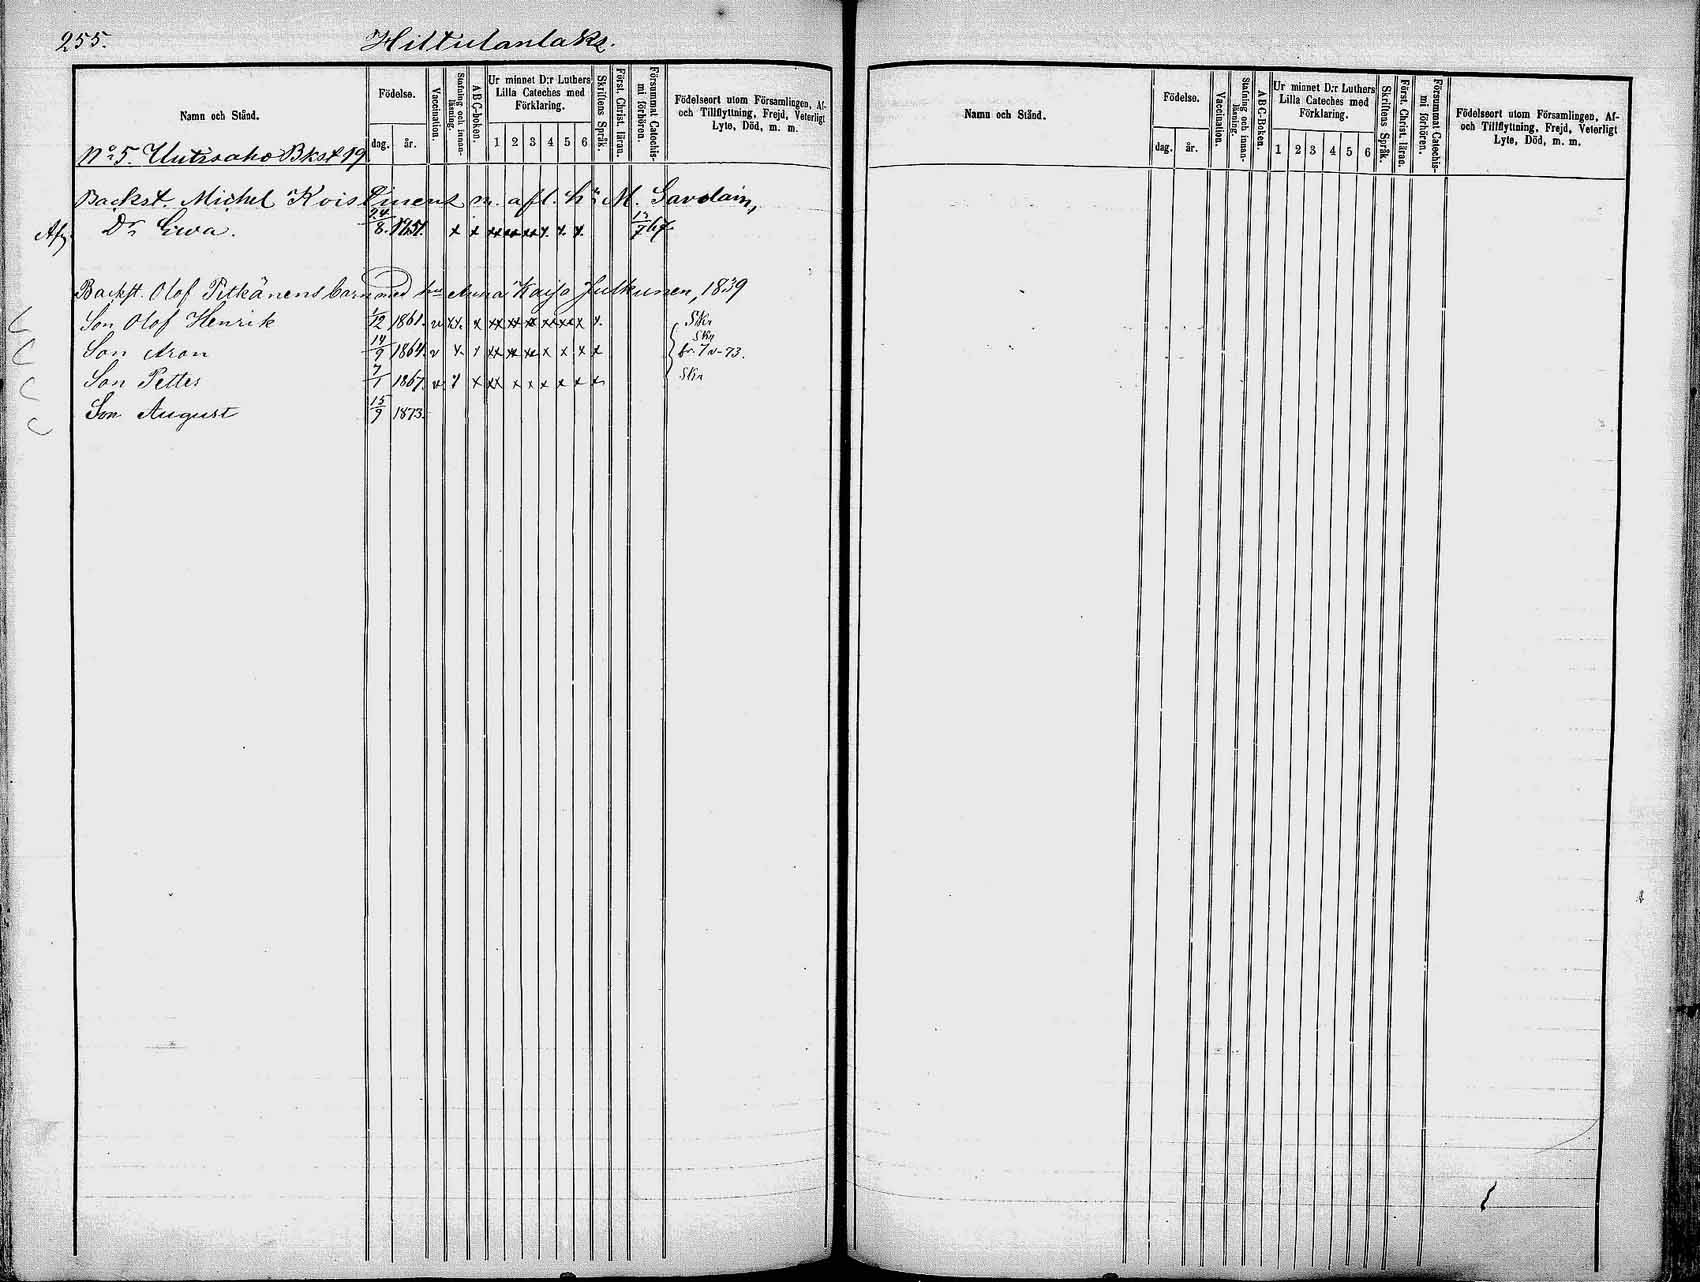 255. Hiltulanlaks.
Namn och Stånd.
Födelse.
dag. år.
Vaccination.
Stafning och innan-läsning.
A B C-boken.
Ur minnet D:r Luthers
Lilla Cateches med
Förklaring.
1 2 3 4 5 6
Skriftens Språk.
Först. Christ. läran.
Försummat Catechis-mi förhören.
Födelseort utom Församlingen, Af-
och Tillflyttning, Frejd, Veterligt
Lyte, Död, m. m.
No 5. Uutisaho Bkst 19
Backst. Michel Koistinens m. afl. h:u M. Savolain,
Afg. Dr Ewa. 24/8. 1851. x x xx xx xx x x x 13/7 67
Backst. Olof Pitkänens barn med hu Anna Kajsa Julkunen, 1839
Son Olof Henrik 1/12 1861. v xx x xx xx xx xx xx x x Skr
Son Aron 14/9 1864. v x x xx xx xx x x x x Skr
fr. 7 v-73.
Son Petter 7/1 1867. v x x xx x x x x x x Skr
Son August 15/9 1873.
Namn och Stånd.
Födelse.
dag. år.
Vaccination.
Stafning och innan-läsning.
A B C-Boken.
Ur minnet D:r Luthers
Lilla Cateches med
Förklaring.
1 2 3 4 5 6
Skriftens Språk.
Först. Christ. läran.
Försummat Catechis-mi förhören.
Födelseort utom Församlingen, Af-
och Tillflyttning, Frejd, Veterligt
Lyte, Död, m. m.